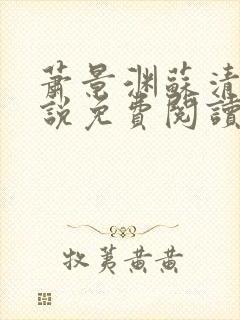 蕭景淵蘇清
說免費閱讀
牧荑黃黃